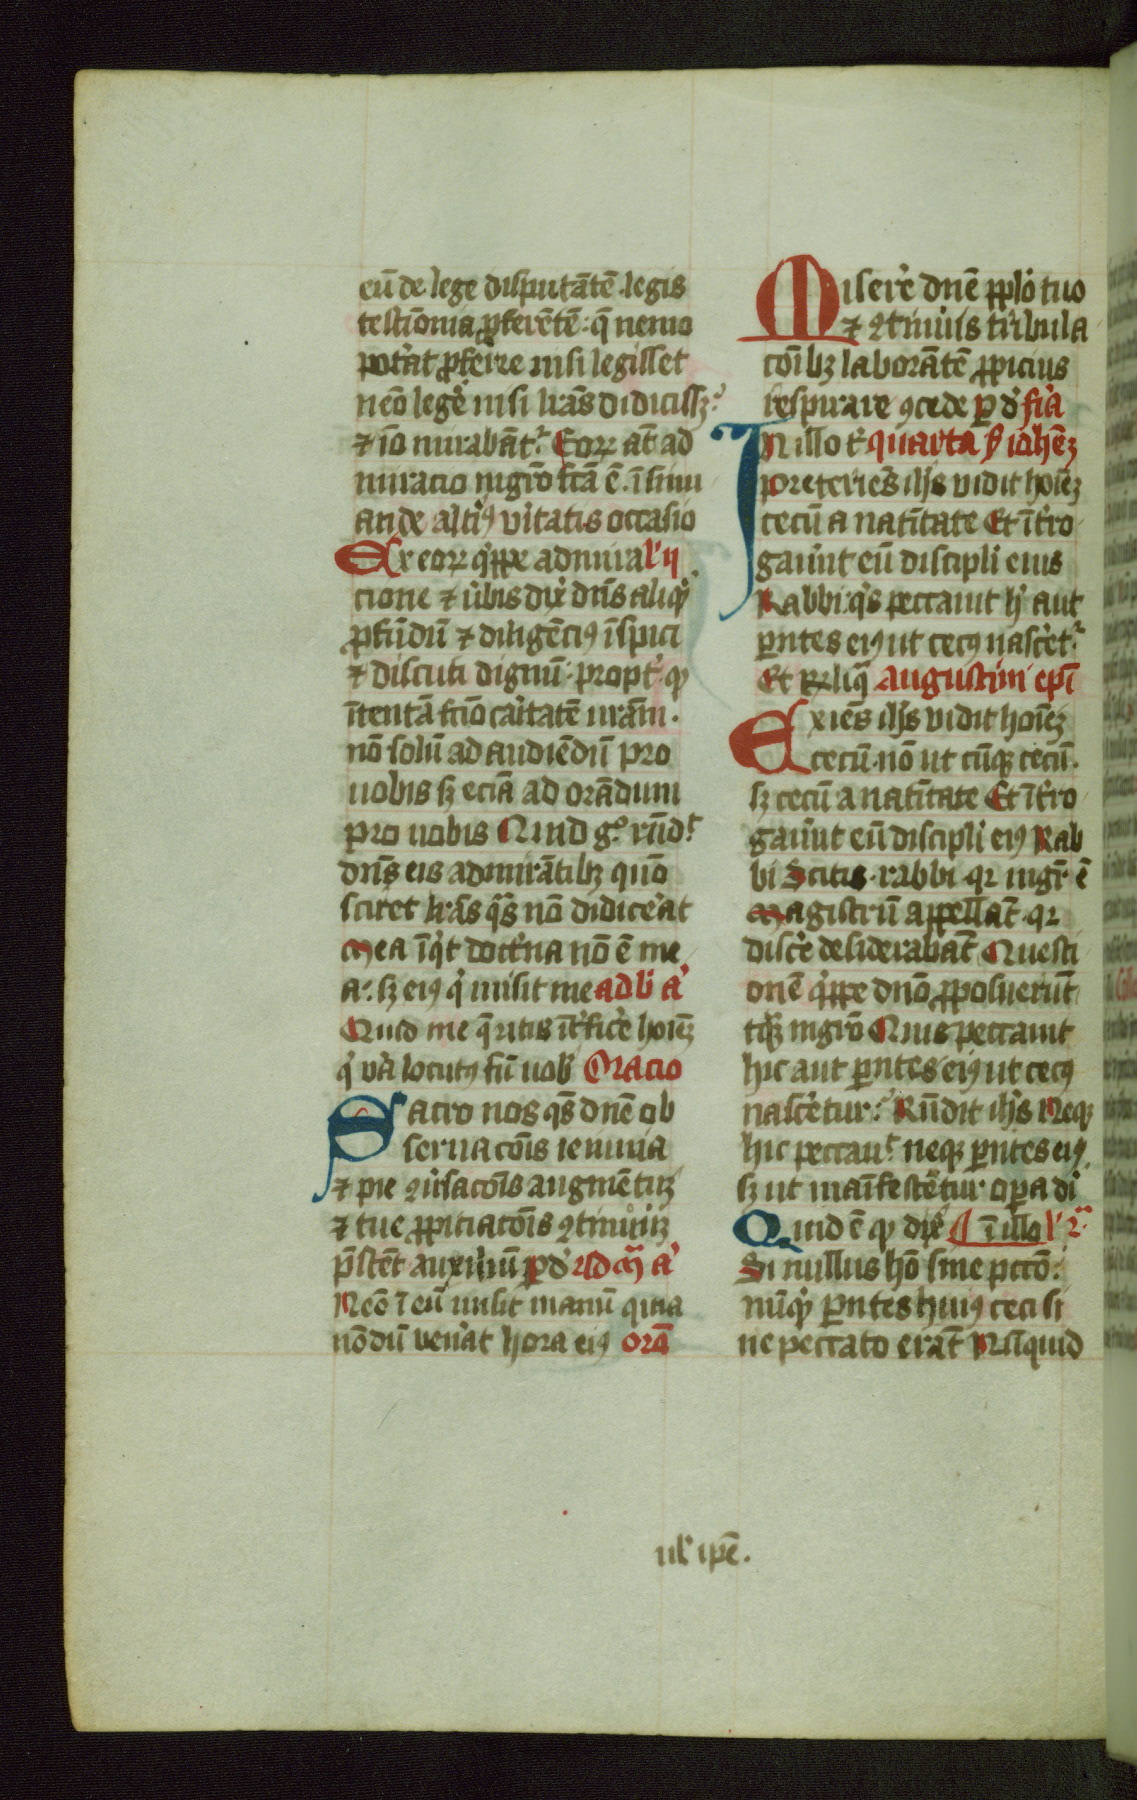 eū de lege disputātē legis
testīonia ꝓferētē: q̄ nemo
pot'at ꝓferre nisi legisset
neō leg'e nisi lrās didicissꝫ:
⁊ iō mirabāt'. Eoꝝ āt ad
miracio mgrō fcā ē. īsinu
ande altiꝰ vitatis occasio
Ex eoꝝ q'ppe admira l' ij
cione ⁊ ūbis dix' dn̄s aliqꝫ
ꝓfūdū ⁊ diligēciꝰ īspici
⁊ discuti dignū. propt' qꝫ
ītentā fcio caritatē urām.
nō solū ad audiēdū pro
uobis sꝫ eciā ad orādum
pro uobis Quid g° rn̄dꝫ
dn̄s eis admirātibꝫ quō
sciret lrās q's nō didicerat
Mea īq't doct'na nō ē me
a: sꝫ eiꝰ q' misit me ad b' a'
Quid me q̄ritis īt'fic'e hoiēꝫ
q' v'a locutꝰ sū uob' Oracio
Sacro nos qs̄ dn̄e ob
seruacōis ieiunia
⁊ pie 9ūsacōis augmētūꝫ
⁊ tue ꝓpitiatōis 9tinuūꝫ
p̄stēt auxiliū ꝑ d' 2ſd m̄ a'
Neō ī eū misit manū quia
nōdū ven'at hora eiꝰ orā
Miser'e dn̄e pplō tuo
⁊ 9tinuis tribula
cōibꝫ laborātē ꝓpicius
respirare 9cede ꝑ d' f'ia
In illo t' quarta ẜ iohēꝫ
Preteriēs ih̄s vidit hoiēꝫ
cecū a natiītate Et īt'ro
gauīnt eū discipli eius
Rabbi q's peccauit h' aut
ꝑntes eiꝰ ut cecꝰ nasc'et'
Et reliq̄ Augustini ep̄i
Exiēs ih̄s vidit hoiēꝫ
cecū. nō ut cūqꝫ cecū.
sꝫ cecū a natiītate Et īt'ro
gauīnt eū discipli eiꝰ Rab
bi Scitis. rabbi qꝛ mgr̄ ē
Magistrū appellāt. qꝛ
disc'e desiderabāt Questi
onē q'ppe dn̄o ꝓposuerūt
tāqꝫ mgrō Quis peccauit
hic aut ꝑntes eiꝰ ut cecꝰ
nasc'etur: Rn̄dit ih̄s Neqꝫ
hic peccau' neqꝫ ꝑntes eiꝰ
sꝫ ut maīfestētur oꝑa dī
Quid ē qꝫ dix' ¶ ī illo l' 2ᵃ
Si nullus hō sine pctō:
nūqꝫ ꝑntes huiꝰ ceci si
ne peccato erāt Nūquid
ul' ip̄e.